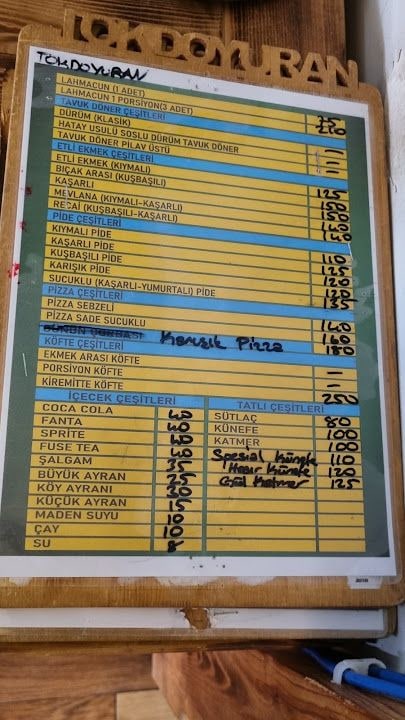 TOKDOYURAN
TOKDOYURAN
LAHMACUN (1 ADET) 35
LAHMACUN 1 PORSİYON(3 ADET)
TAVUK DÖNER ÇEŞİTLERİ
DÜRÜM (KLASİK)
HATAY USULÜ SOSLU DÜRÜM TAVUK DÖNER —
TAVUK DÖNER PİLAV ÜSTÜ —
ETLİ EKMEK ÇEŞİTLERİ
ETLİ EKMEK (KIYMALI) 125
BIÇAK ARASI (KUŞBAŞILI) 150
KAŞARLI 150
MEVLANA (KIYMALI-KAŞARLI) 140
RECAİ (KUŞBAŞILI-KAŞARLI) 140
PİDE ÇEŞİTLERİ
KIYMALI PİDE 110
KAŞARLI PİDE 125
KUŞBAŞILI PİDE 120
KARIŞIK PİDE 120
SUCUKLU (KAŞARLI-YUMURTALI) PİDE 135
PİZZA ÇEŞİTLERİ
PİZZA SEBZELİ 140
PİZZA SADE SUCUKLU 160
GÜNÜN ÇORBASI Karışık Pizza 180
KÖFTE ÇEŞİTLERİ
EKMEK ARASI KÖFTE —
PORSİYON KÖFTE —
KİREMİTTE KÖFTE 250
İÇECEK ÇEŞİTLERİ
COCA COLA 40
FANTA 40
SPRİTE 40
FUSE TEA 40
ŞALGAM 35
BÜYÜK AYRAN 25
KÖY AYRANI 30
KÜÇÜK AYRAN 15
MADEN SUYU 10
ÇAY 10
SU 8
TATLI ÇEŞİTLERİ
SÜTLAÇ 80
KÜNEFE 100
KATMER 100
Spesial Künefe 110
Hasır Künefe 120
Gül Katmer 125